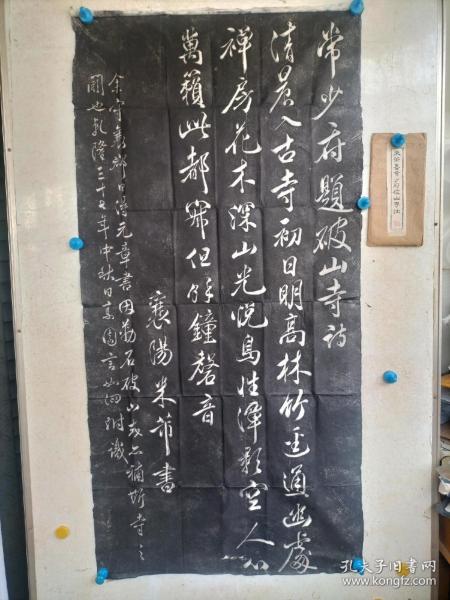 常少府題破山寺詩
清晨入古寺初日明高林竹逕通幽處
禅房花木深山光悦鳥性潭影空人心
萬籟此都寂但餘鐘磬音
襄陽米芾書
余守襄郡日得元章書因勒石破山
乾隆三十七年中秋日言如泗附識
孔夫子旧书网
www.kongfz.com